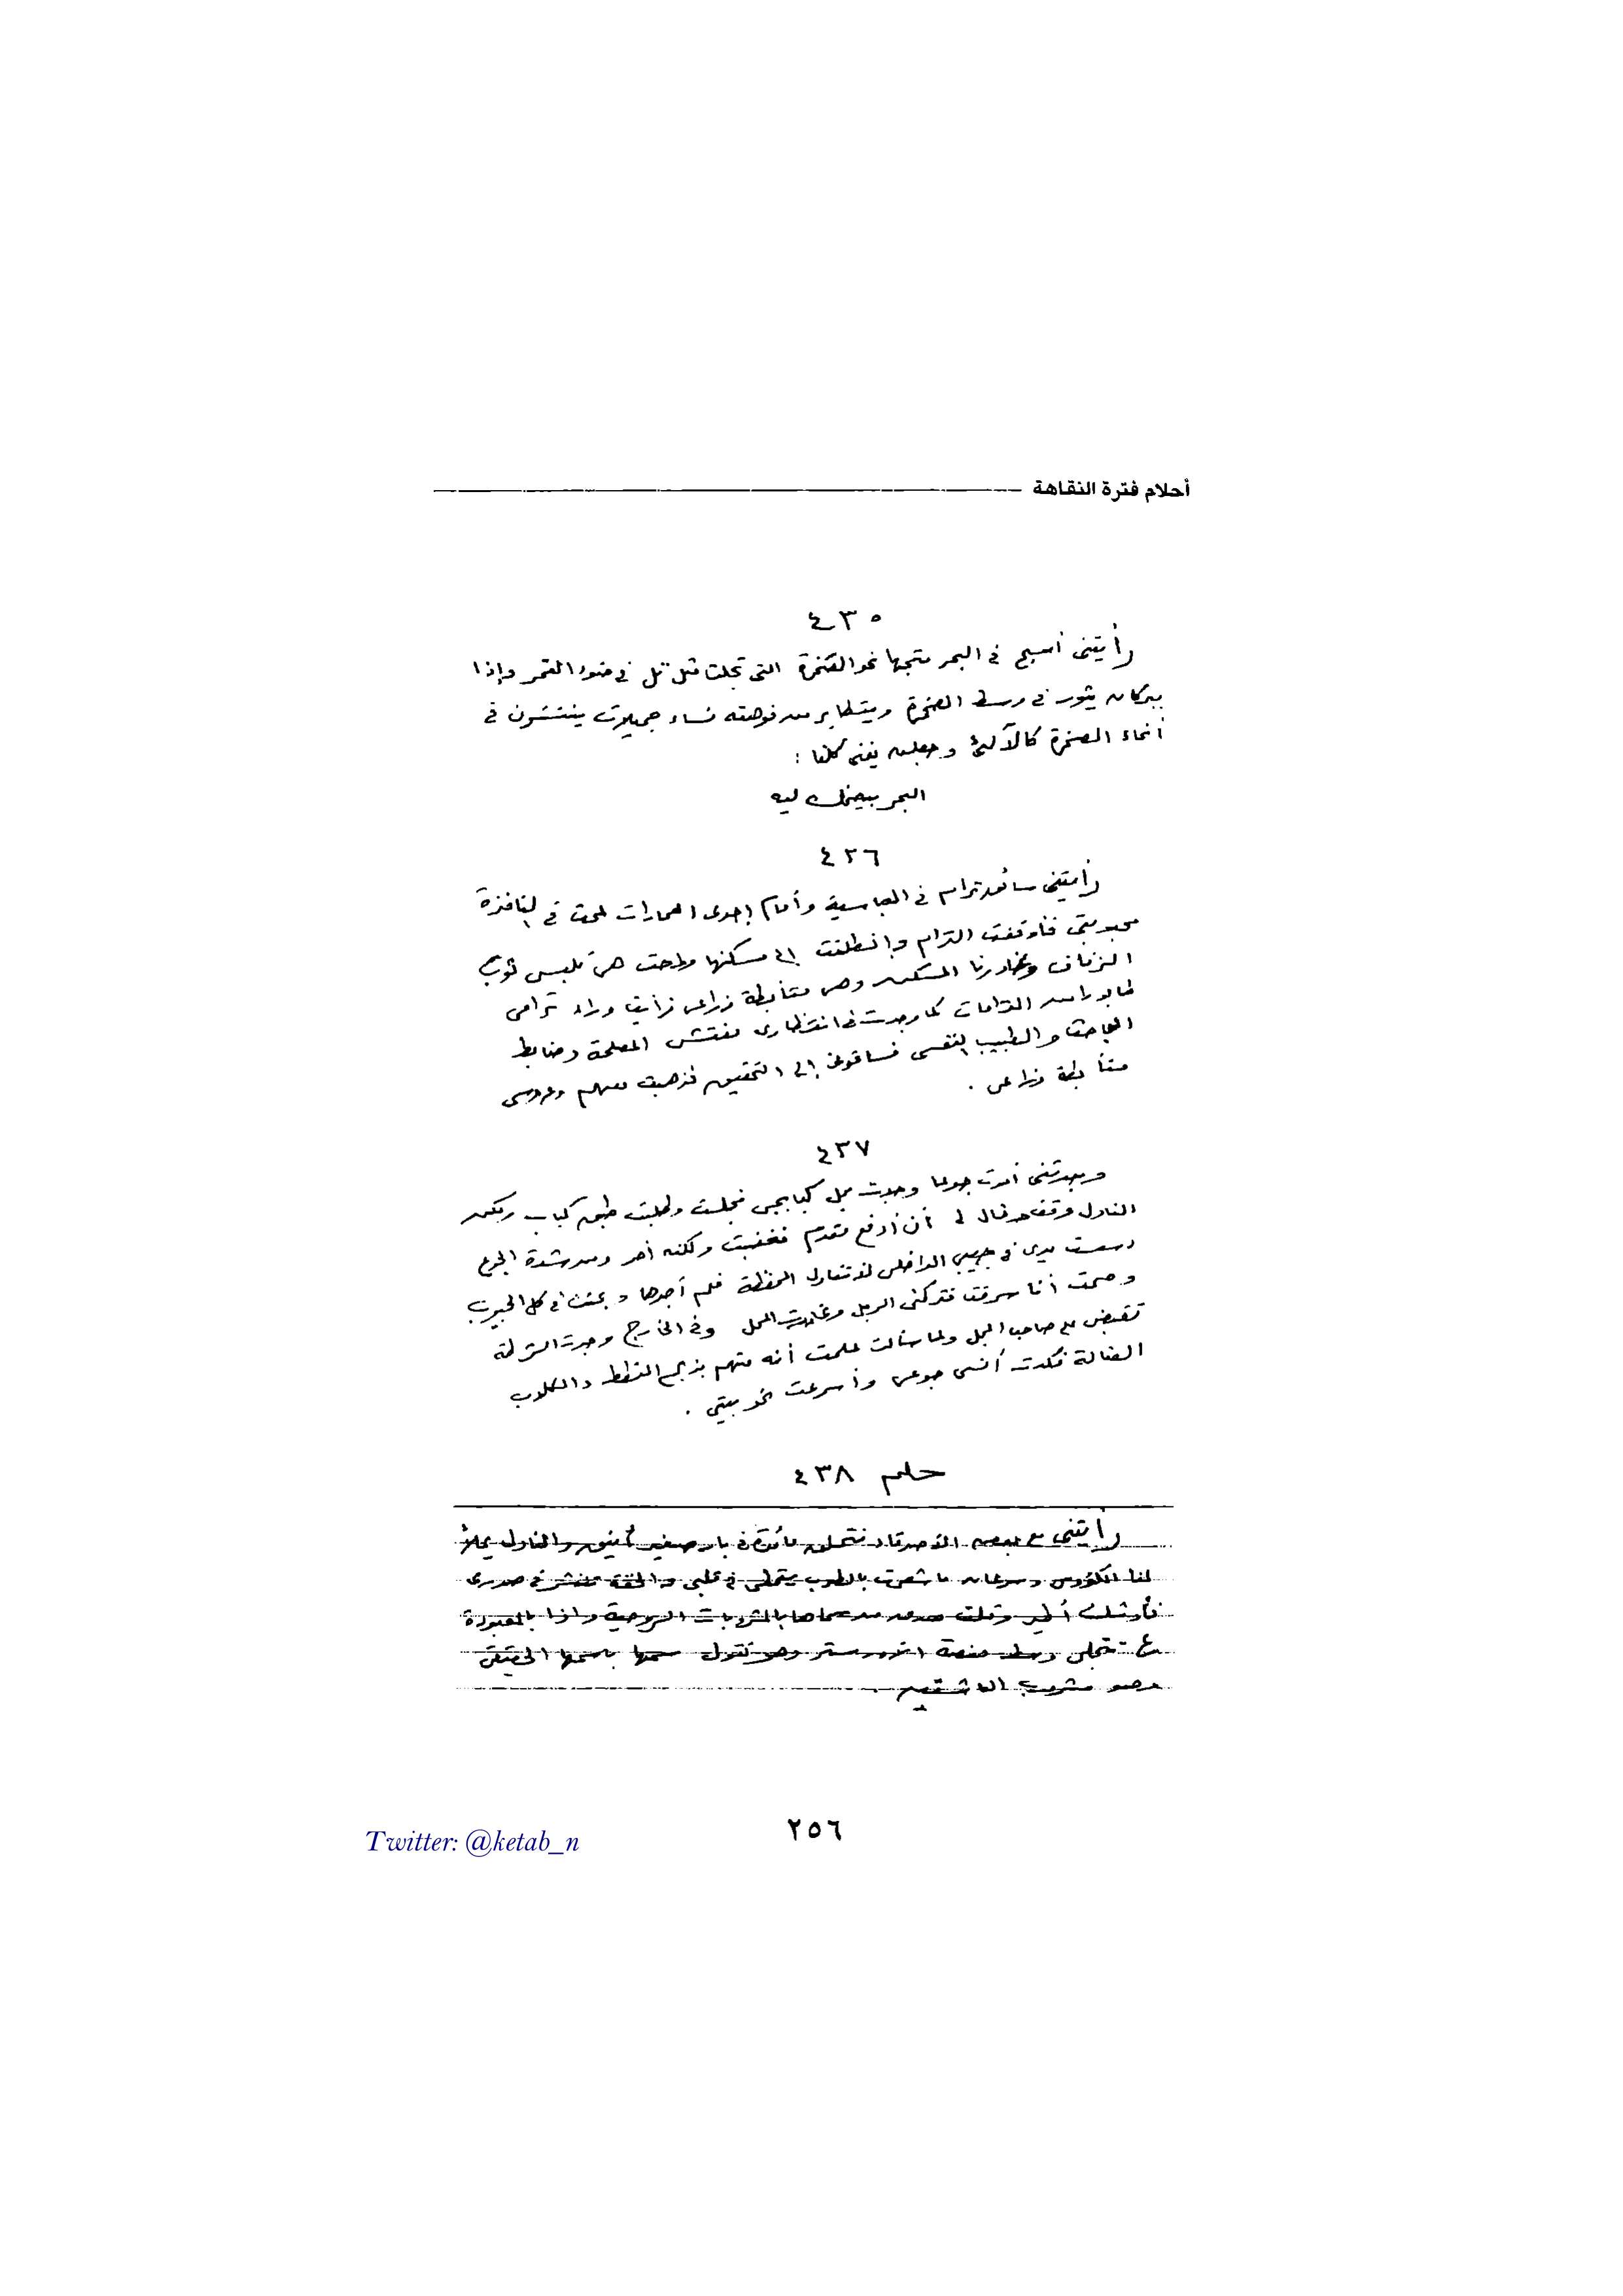 أحلام فترة النقاهة
٤٣٥
رأيتنى أسبح فى البحر متجها نحو الصخرة التى تجلت مثل تل فى ضوء القمر وإذا
ببركان يثور فى وسط الصخرة ويتطاير من فوهته نساء جميلات ينتشرن فى
أنحاء الصخرة كالآلئ وجعلن يغنى كلنا :
البحر بيضحك ليه
٤٣٦
رأيتنى سائق ترام فى العباسية وأمام إحدى العمارات لمحت فى النافذة
محبوبتى فأوقفت الترام وانطلقت إلى مسكنها وراحت هى تلبس ثوب
الزفاف وغادرنا المسكن وهى متأبطة ذراعى فرأيت وراء ترامى
طابورا من الترامات كما وجدت فى انتظارى مفتش المصلحة وضابط
المباحث والطبيب النفسى فساقونى إلى التحقيق فذهبت معهم وعروسى
متأبطة ذراعى .
٤٣٧
وجدتنى أموت جوعا وجدت محل كبابجى فجلست وطلبت طبق كباب ولكن
النادل وقف وقال لى أن أدفع مقدم فغضبت ولكنه أصر ومن شدة الجوع
دسست يدى فى جيبى الداخلى لتتناول المحفظة فلم أجدها وبحثت فى كل الجيوب
وصحت أنا سرقت فتركنى الرجل وغادرت المحل وفى الخارج وجدت الشرطة
تقبض على صاحب المحل ولما سألت علمت أنه متهم بذبح القطط والكلاب
الضالة فكدت أنسى جوعى وأسرعت نحو بيتى .
حلم ٤٣٨
رأيتنى مع بعض الأصدقاء نتحلق مائدة فى بار صغير أنيق والنادل يملأ
لنا الكؤوس وسرعان ما شعرت بالطرب يتمطى فى قلبى والخفة تنتشر فى صدرى
فأوشك أطير وقلت صدق من سماها بالمشروبات الروحية وإذا بالمعبودة
ع تتجلى وسط منصة الأوركستر وهى تقول سمها باسمها الحقيقى
وهو مشروب العاشقين .
٢٥٦
Twitter: @ketab_n